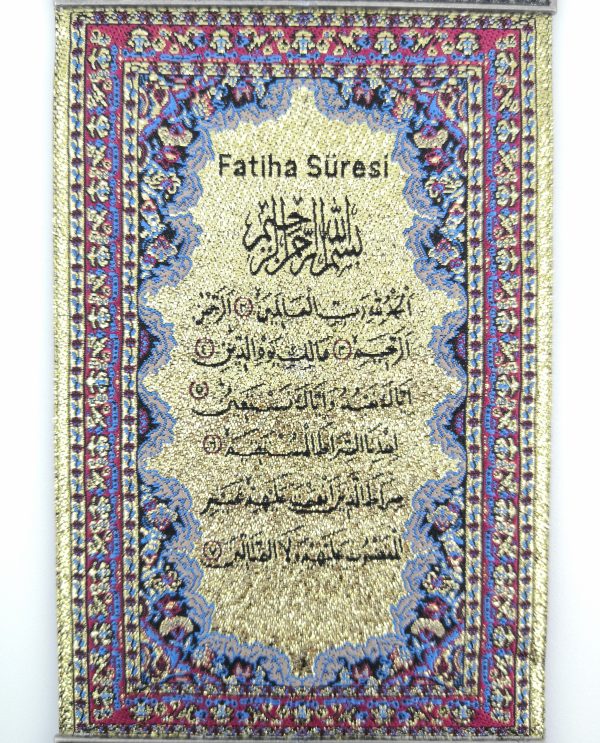 Fatiha Sûresi
بسم الله الرحمن الرحيم
الحمد لله رب العالمين ٢ الرحمن
الرحيم ٣ مالك يوم الدين ٤
اياك نعبد واياك نستعين ٥
اهدنا الصراط المستقيم ٦
صراط الذين انعمت عليهم غير
المغضوب عليهم ولا الضالين ٧